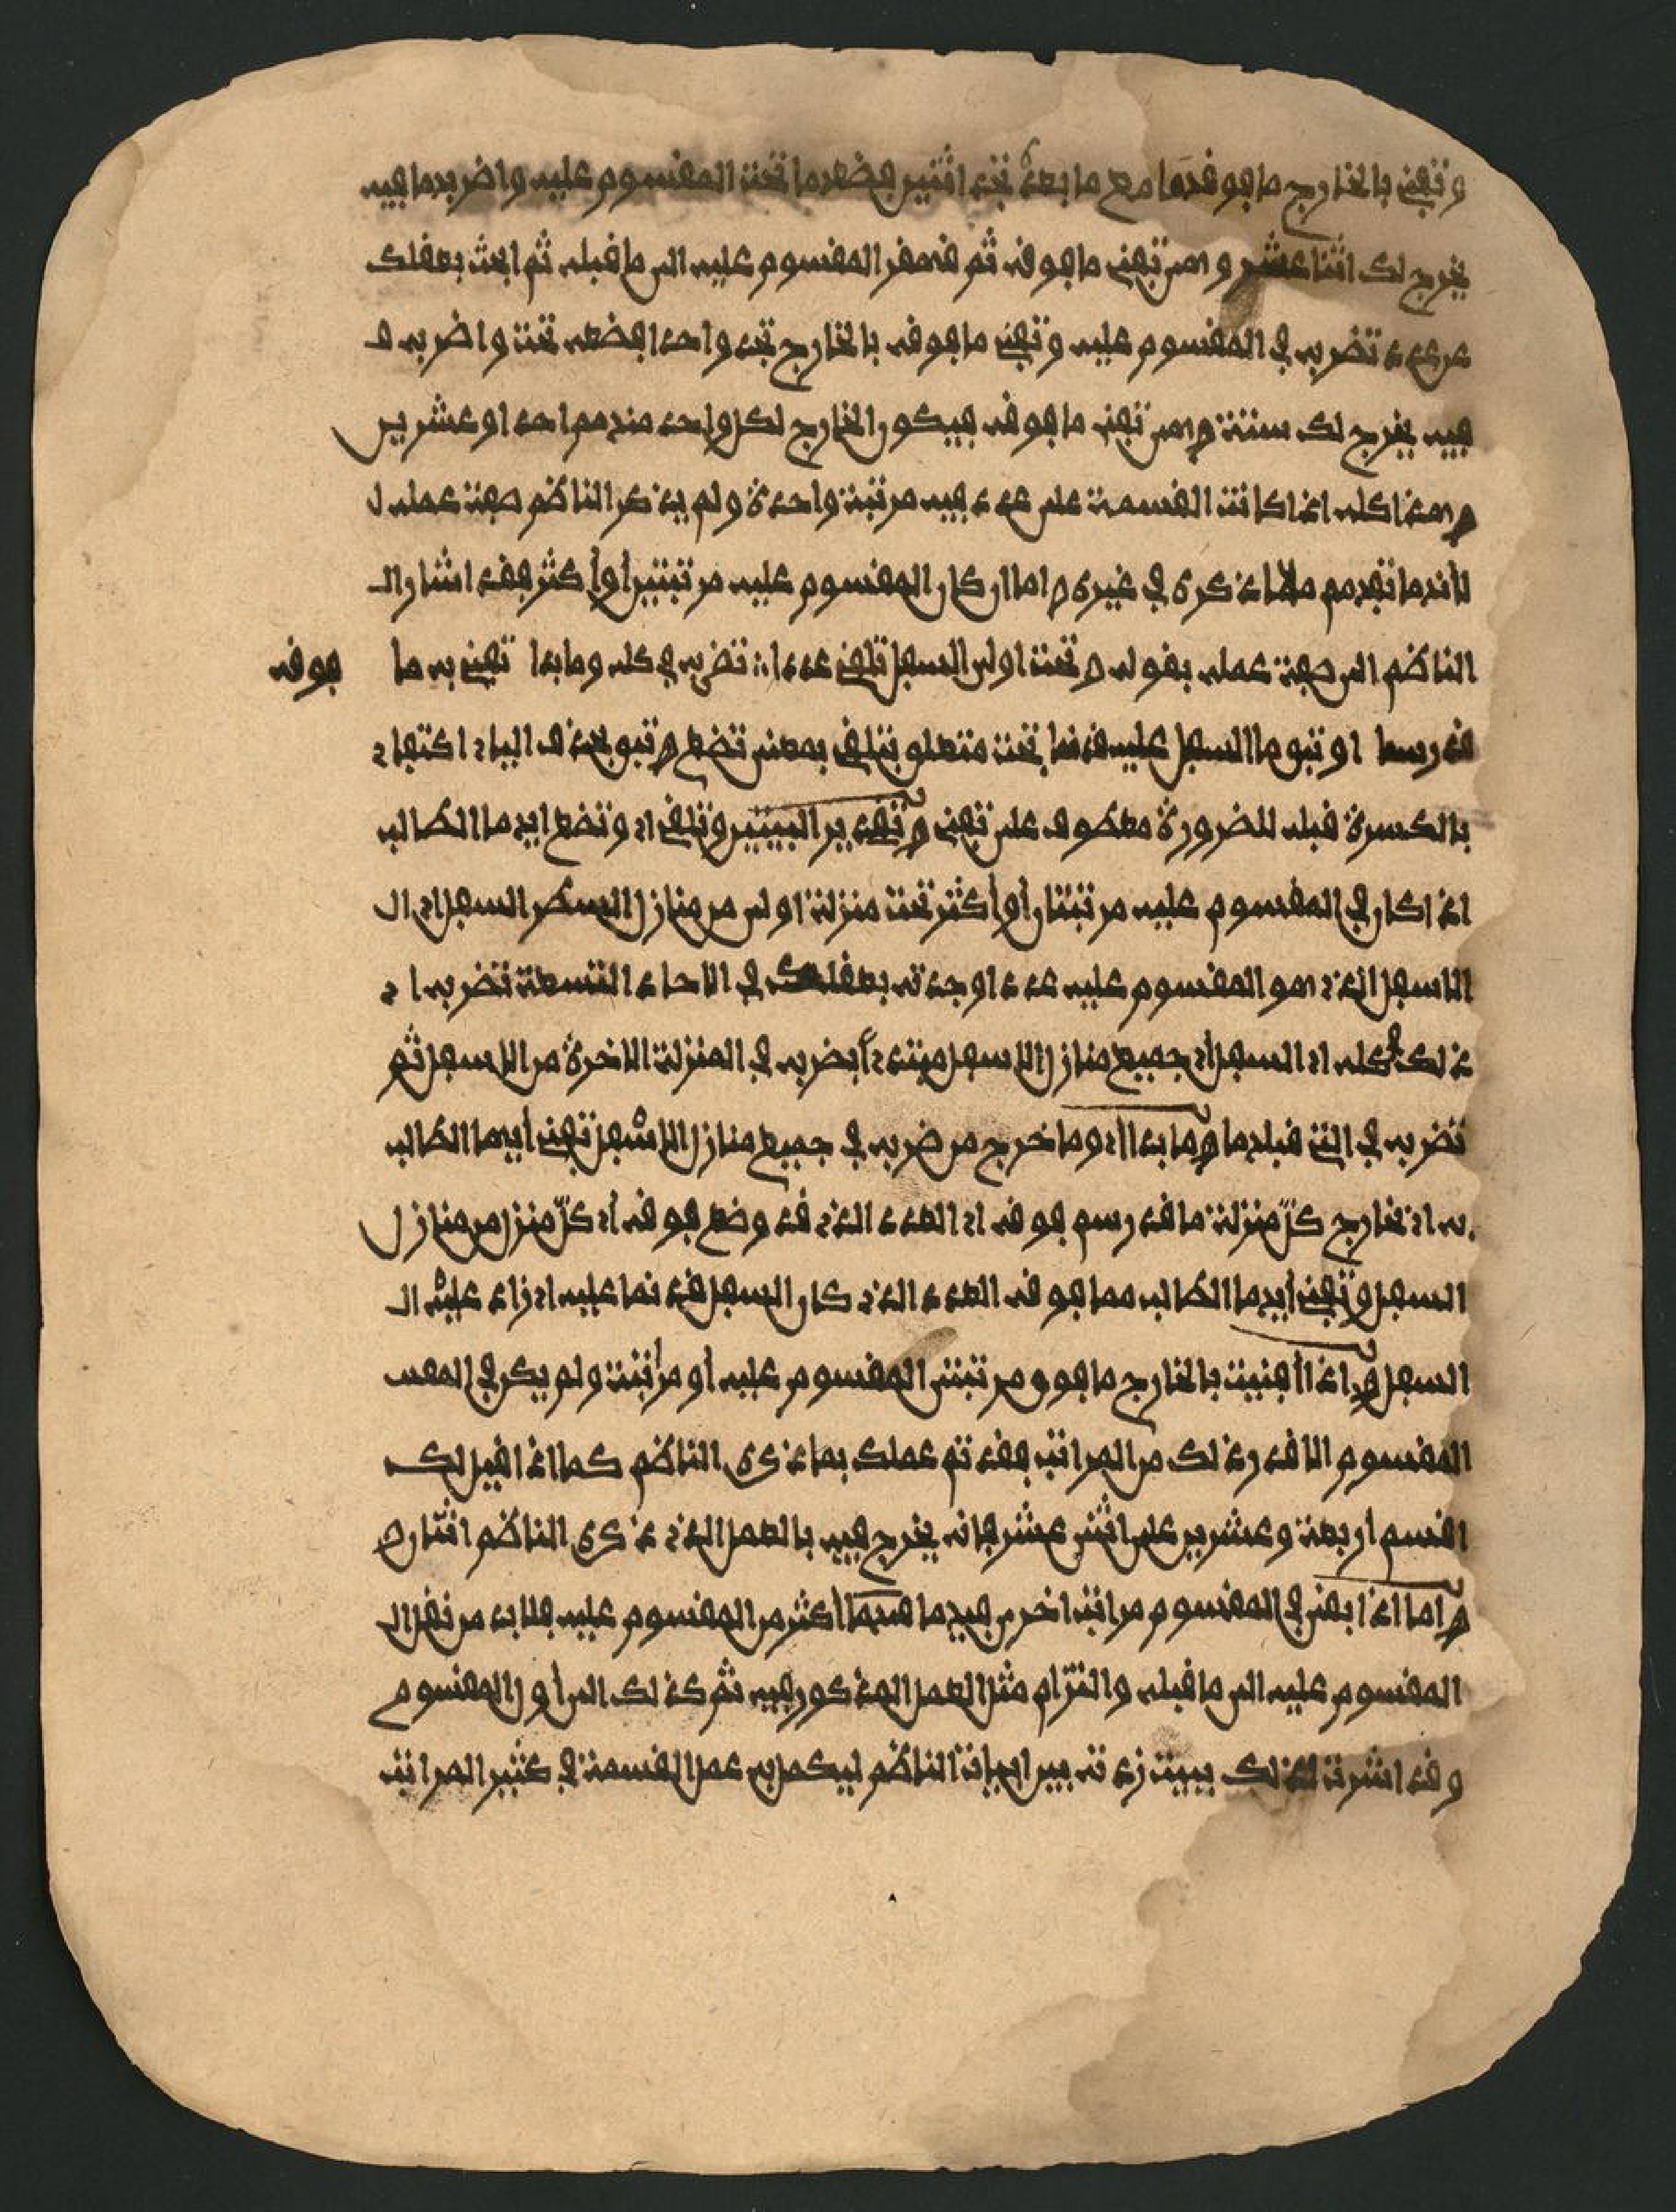 وتفني بالخارج ما فوقهما مع ما بعد تجد اثنين فضعهما تحت المقسوم عليه واضربهما فيه
يخرج لك اثنا عشر وهي تفني ما فوقه ثم قهقر المقسوم عليه الى ما قبله ثم ابحث بعقلك
عن عدد تضربه في المقسوم عليه وتفني ما فوقه بالخارج تجد واحدا فضعه تحت واضربه فـ
فيه يخرج لك ستة وهي تفني ما فوقه فيكون الخارج لكل واحد منهم احدا وعشرين
وهذا كله اذا كانت القسمة على عدد فيه مرتبة واحدة ولم يذكر الناظم صفة عمله ل
لانها تفهم مما ذكره في غيره واما ان كان المقسوم عليه مرتبتين أو أكثر فقد اشار الـ
الناظم الى صفة عمله بقوله وتحت اولى السفل تلقي عددا ؛ تضربه في كله وما بدا تفني به ما فوقه
قد رسما او تبق ما السفل عليه قد نما فتحت متعلق بتلقي بمعنى تضع وتبق بحذف الياء اكتفاء
بالكسرة قبله للضرورة معطوف على تفني وتقدير البيتين وتلقي اي وتضع ايها الطالب
اذا كان في المقسوم عليه مرتبتان أو أكثر تحت منزلة اولى من منازل السطر السفل اي الـ
الاسفل الذي هو المقسوم عليه عددا وجدته بعقلك في الاحاد التسعة تضربه اي
ذلك كله اي السفل اي جميع منازل الاسفل مبتدءا بضربه في المنزلة الاخرة من الاسفل ثم
تضربه في التي قبلها وما بدا اي وما خرج من ضربه في جميع منازل الاسفل تفني أيها الطالب
به اي بخارج كل منزلة ما قد رسم فوقه اي العدد الذي قد وضع فوقه أي كل منزل من منازل
السفل وتفني أيها الطالب مما فوقه العدد الذي كان السفل قد نما عليه اي زاد عليه الـ
السفل واذا أفنيت بالخارج ما فوق مرتبتي المقسوم عليه أو مراتبه ولم يكن في المقسـ
المقسوم الا قدر ذلك من المراتب فقد تم عملك بما ذكره الناظم كما اذا قيل لك
اقسم اربعة وعشرين على اثني عشر فانه يخرج فيه بالعمل الذي ذكره الناظم اثنان و
واما اذا بقي في المقسوم مراتب اخرى فيها أكثر من المقسوم عليه فلا بد من نقل الـ
المقسوم عليه الى ما قبله والتزام مثل العمل المذكور فيه ثم كذلك الى أول المقسوم
وقد اشرت لذلك ببيت زدته بين ابيات الناظم ليكمل به عمل القسمة في كثير المراتب